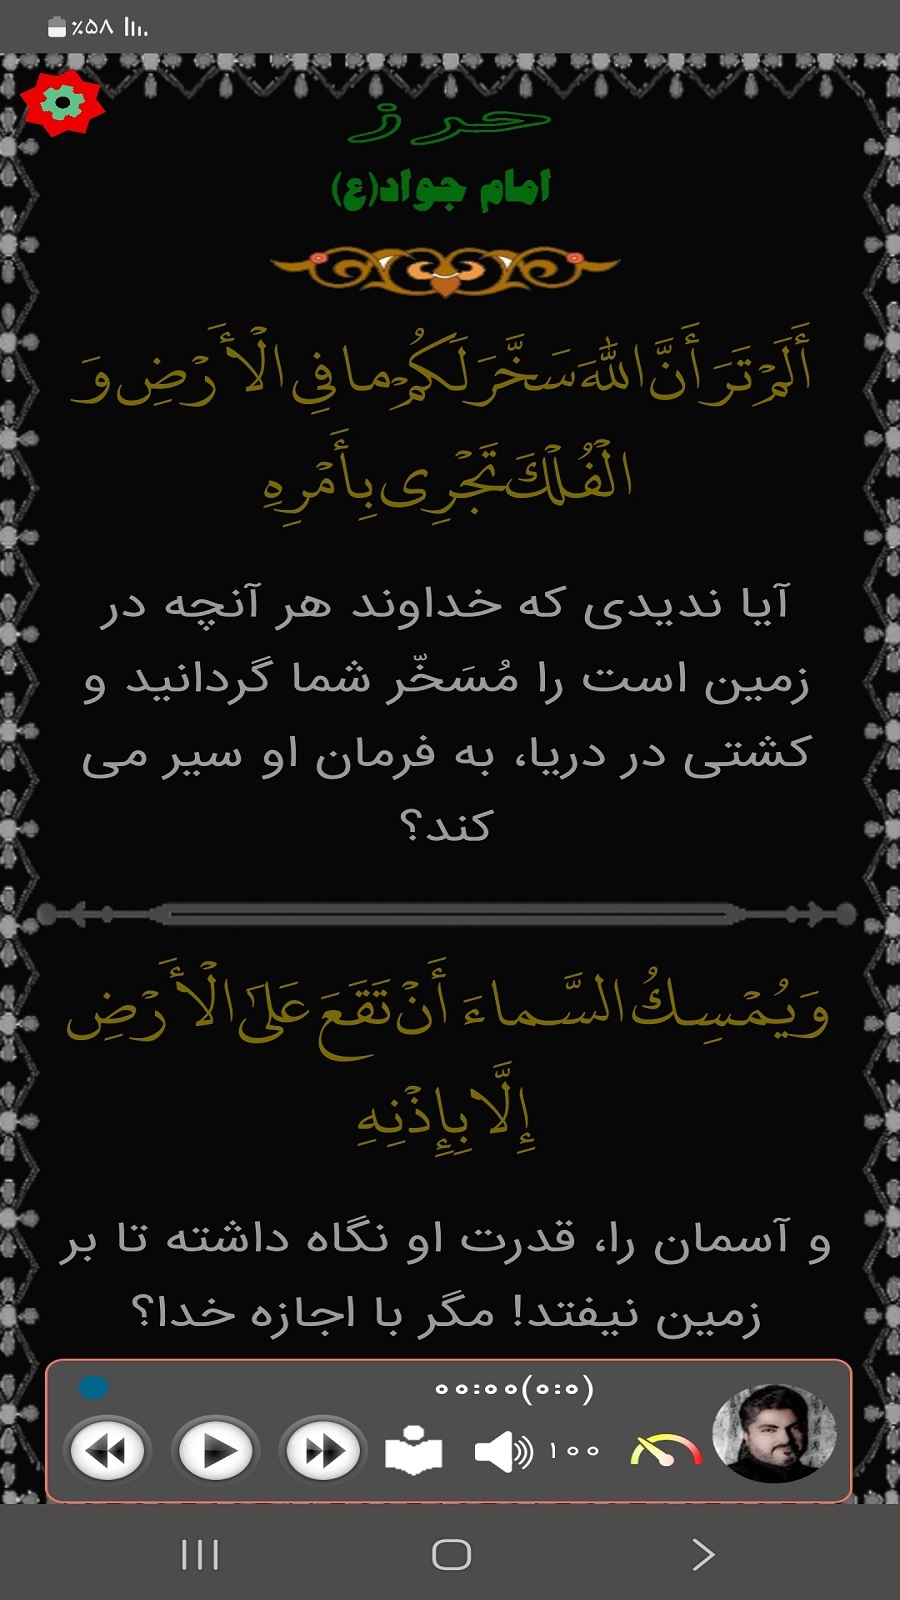 ٪۵۸
حرز
امام جواد(ع)
أَلَمْ تَرَ أَنَّ اللهَ سَخَّرَ لَكُمْ ما فِي الْأَرْضِ وَ
الْفُلْكَ تَجْرِی بِأَمْرِهِ
آیا ندیدی که خداوند هر آنچه در
زمین است را مُسَخّر شما گردانید و
کشتی در دریا، به فرمان او سیر می
کند؟
وَ يُمْسِكُ السَّماءَ أَنْ تَقَعَ عَلَى الْأَرْضِ
إِلَّا بِإِذْنِهِ
و آسمان را، قدرت او نگاه داشته تا بر
زمین نیفتد! مگر با اجازه خدا؟
۰۰:۰۰(۰:۰)
۱۰۰